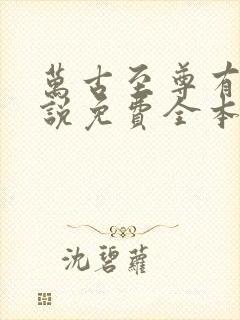 萬古至尊有
說免費全本
沈碧蘿